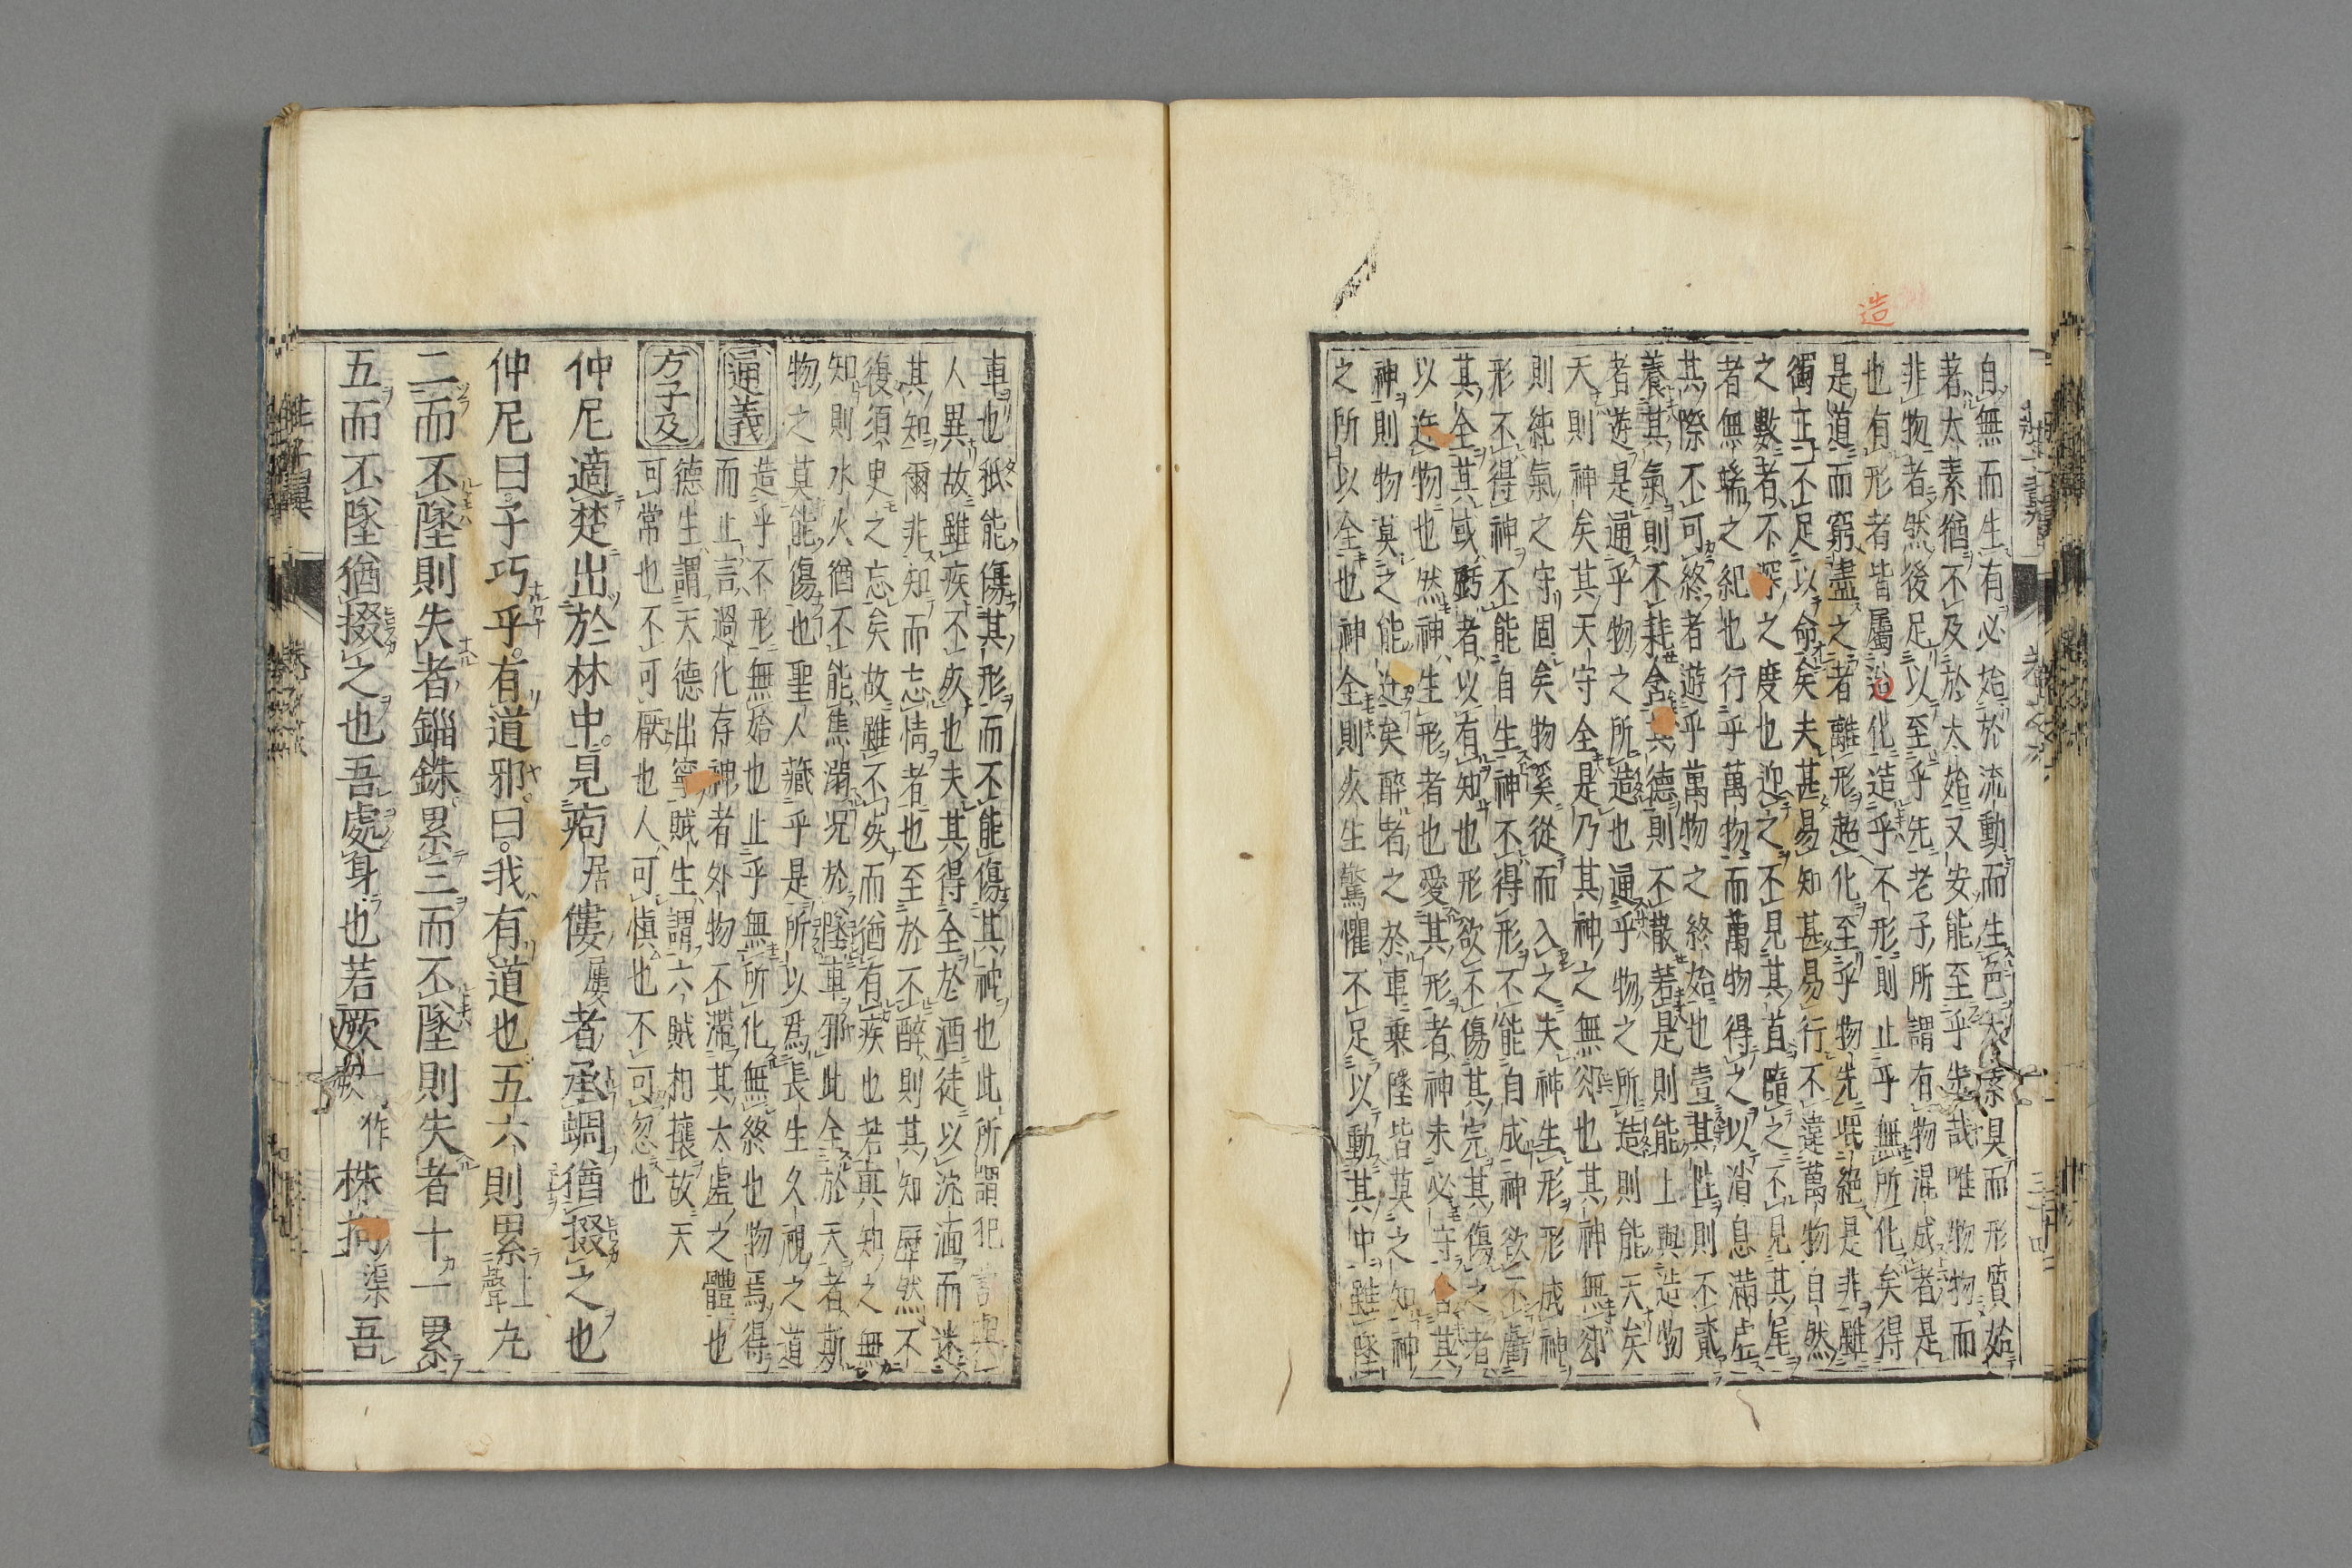 造
自無而生有必始於流動而生色太素具而形質始
著太素猶不及於太始又安能至乎先哉唯物物而
非物者然後足以至乎先老子所謂有物混成者是
也有形者皆屬造化造乎不形則止乎無所化矣得
是道而窮盡之者離形超化至乎物先泯絶是非雖
獨立不足以命矣夫甚易知甚易行不違萬物自然
之數者不深之度也迎之不見其首隨之不見其尾
者無端之紀也行乎萬物而萬物得之以消息滿虛
其際不可終者遊乎萬物之終始也壹其性則不貳
養其氣則不耗含其德則不散若是則能上與造物
者遊是通乎物之所造也通乎物之所造則能天矣
天則神矣其天守全是乃其神之無郤也其神無郤
則純氣之守固矣物奚從而入之夫神生形形成神
形不得神不能自生神不得形不能自成神欲不虧
其全其或虧者以有知也形欲不傷其完其傷之者
以迕物也然神生形者也愛其形者神未必守含其
神則物莫之能迕矣醉者之於車乘墜皆莫之知神
之所以全也神全則死生驚懼不足以動其中雖墜
車也祇能傷其形而不能傷其神也此所謂犯害與
人異故雖疾不死也夫其得全於酒徒以沈湎而迷
其知爾非知而忘情者也至於不醉則其知歷然不
復須臾之忘矣故雖不死而猶有疾也若真知之無
知則水火猶不能焦溺况於墜車邪此全於天者斯
物之莫能傷也聖人藏乎是所以爲長生久視之道
通義
造乎不形無始也止乎無所化無終也物焉得
而止言過化存神者外物不滯其太虛之體也
方子及
德生謂天德出寧賊生謂六賊相攘故天
可常也不可厭也人可慎也不可忽也
仲尼適楚出於林中見痀居僂屢者承蜩猶掇之也
仲尼曰子巧乎有道邪曰我有道也五六月累上聲丸
二而不墜則失者錙銖累三而不墜則失者十一累
五而不墜猶掇之也吾處身也若厥一作橛株拘渠吾